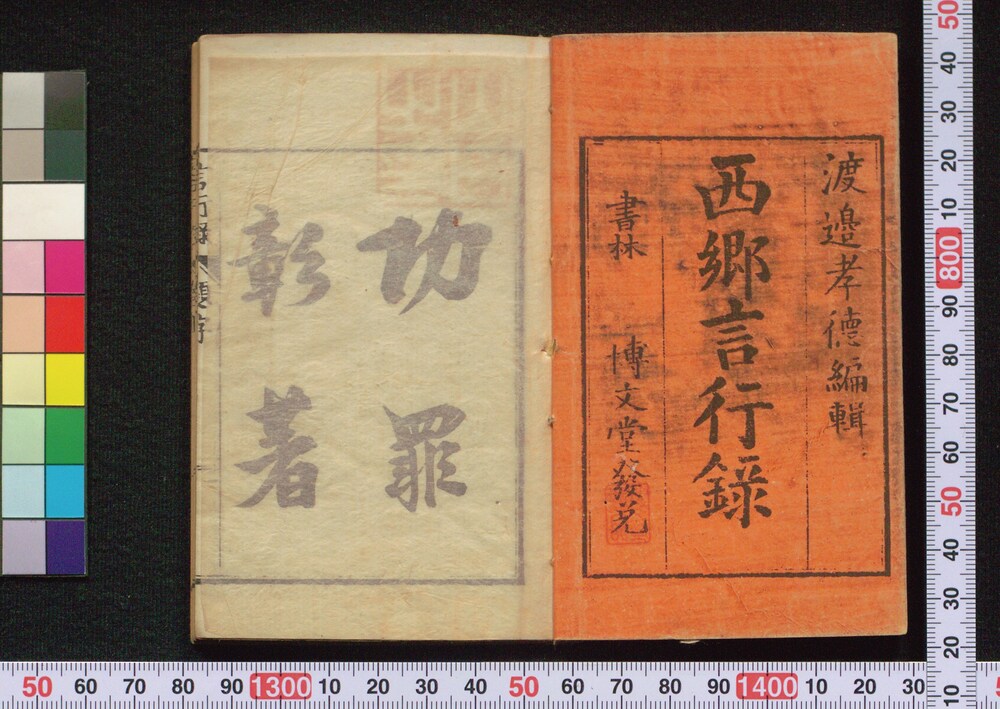 渡邉孝德編輯
西鄉言行錄
書林 博文堂發兌
功罪
彰著
言行錄 題辞
50 60 70 80 90 1300 10 20 30 40 50 60 70 80 90 1400 10 20 30
50 40 30 20 10 800 90 80 70 60 50 40 30 20 10